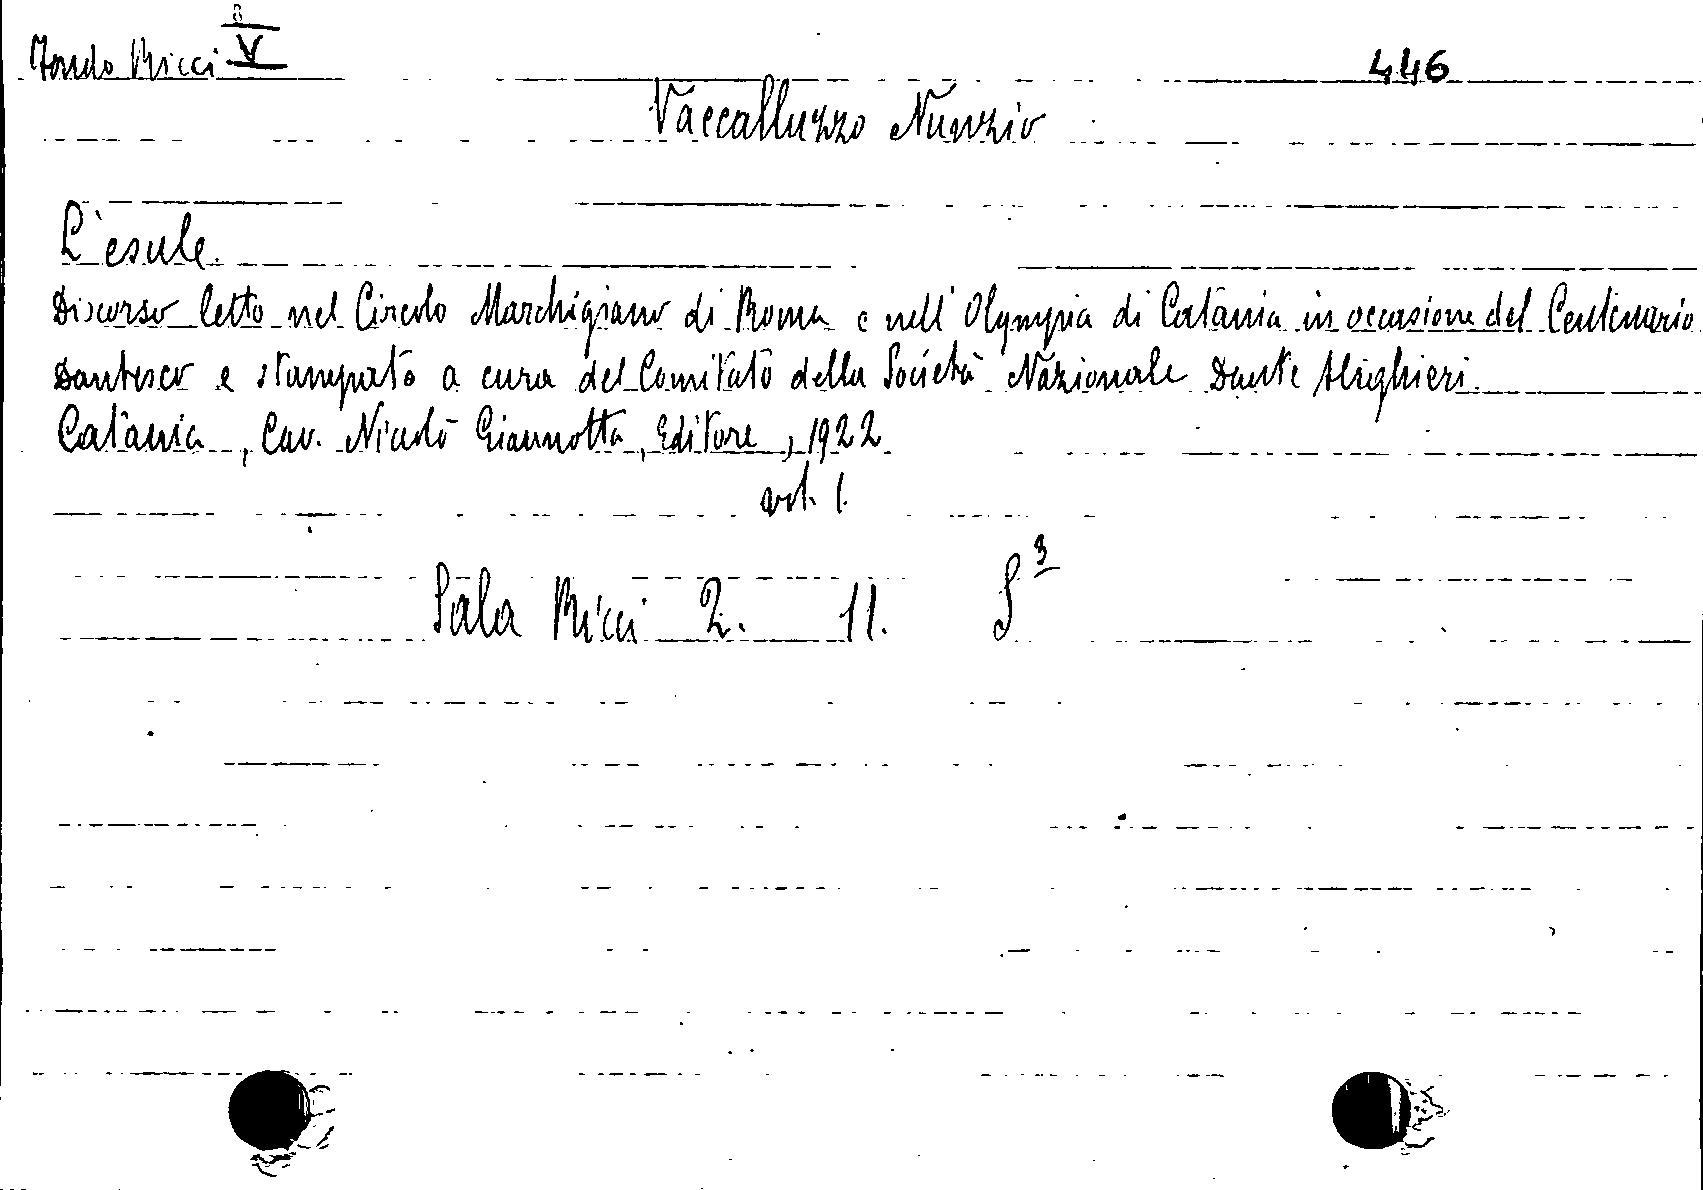 Fondo Ricci V 446
Vaccalluzzo Nunzio
L'esule.
Discorso letto nel Circolo Marchigiano di Roma e nell'Olympia di Catania in occasione del Centenario
Dantesco e stampato a cura del Comitato della Società Nazionale Dante Alighieri.
Catania, Cav. Nicolò Giannotta, Editore, 1922
vol. 1.
Sala Ricci 2. 11. S³